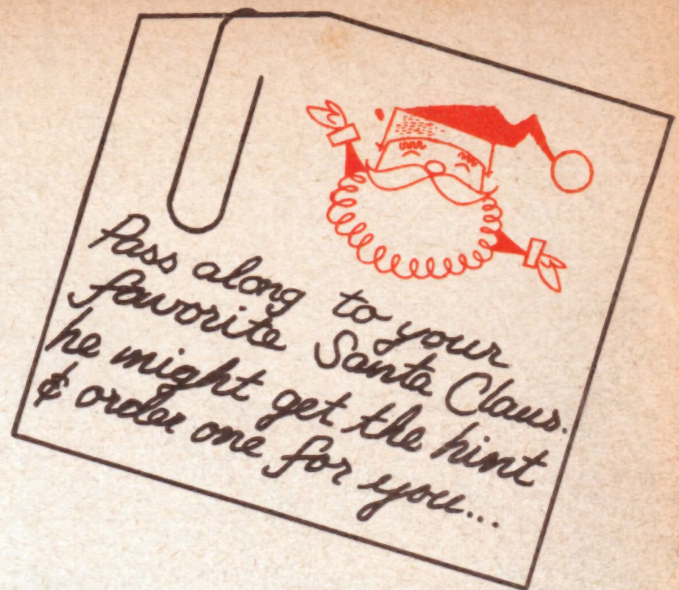 Pass along to your
favorite Santa Claus.
he might get the hint
& order one for you...